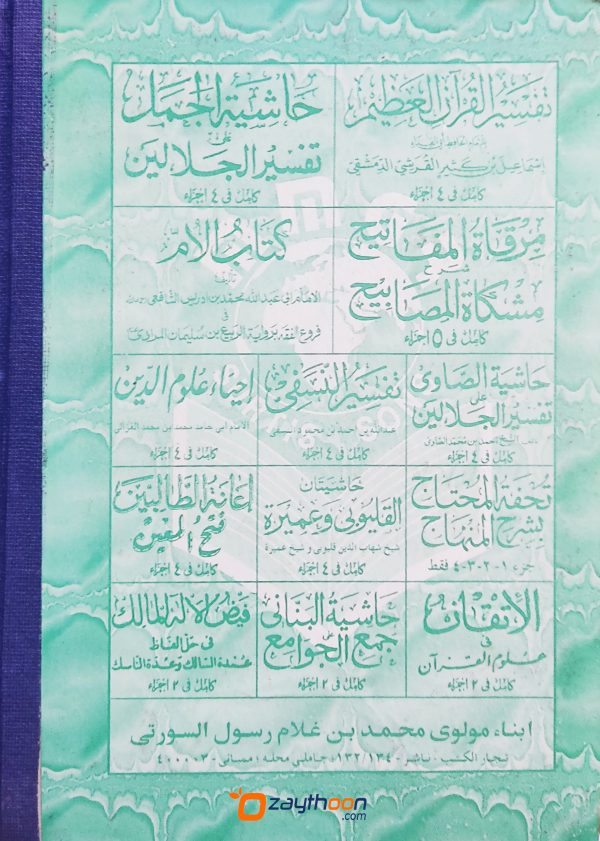 تفسير القرآن العظيم
للامام الحافظ أبي الفداء
إسماعيل بن كثير القرشي الدمشقي
كامل في ٤ أجزاء
حاشية الجمل
على
تفسير الجلالين
كامل في ٤ أجزاء
مرقاة المفاتيح
شرح
مشكاة المصابيح
كامل في ٥ أجزاء
كتاب الأم
تأليف
الامام ابي عبد الله محمد بن ادريس الشافعي
في
فروع الفقه برواية الربيع بن سليمان المرادي
حاشية الصاوي
على
تفسير الجلالين
الشيخ احمد بن محمد الصاوي
كامل في ٤ أجزاء
تفسير النسفي
عبد الله بن احمد بن محمود النسفي
كامل في ٤ أجزاء
إحياء علوم الدين
الامام ابي حامد محمد بن محمد الغزالي
كامل في ٤ أجزاء
تحفة المحتاج
بشرح المنهاج
جزء ١-٢-٣-٤ فقط
حاشيتان
القليوبي وعميرة
شيخ شهاب الدين قليوبي و شيخ عميرة
كامل في ٤ أجزاء
إعانة الطالبين
فتح المعين
كامل في ٤ أجزاء
الإتقان
في
علوم القرآن
كامل في ٢ أجزاء
حاشية البناني
على
جمع الجوامع
كامل في ٢ أجزاء
فيض الإله المالك
في حل الفاظ
عمدة السالك وعدة الناسك
كامل في ٢ أجزاء
ابناء مولوي محمد بن غلام رسول السورتي
تجار الكتب - ناشر - ١٣٢/١٣٤، جاملي محله، ممبائي - ٤٠٠٠٠٣
zaythoon
.com